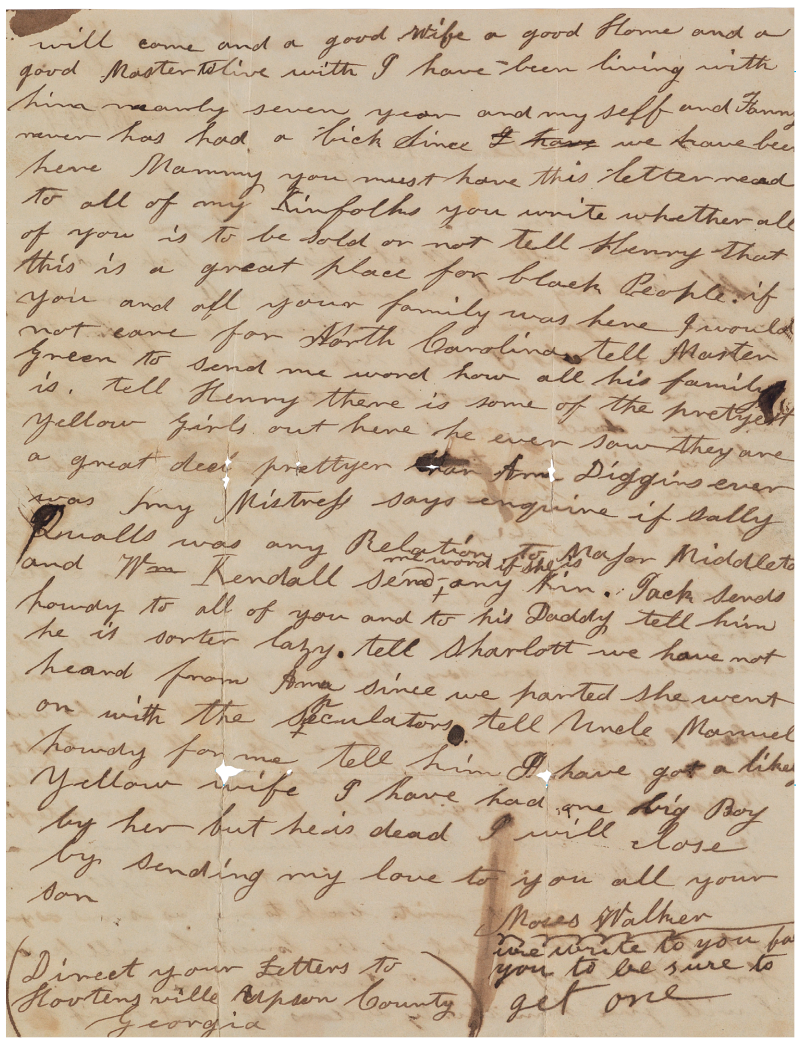 will come and a good Wife a good Home and a
good Master to live with I have been living with
him nearly seven year and my self and Fanny
never has had a lick Since I have we have been
here Mammy you must have this letter read
to all of my Kinfolks you write whether all
of you is to be sold or not tell Henry that
this is a great place for black People. if
you and all your family was here I would
not care for North Carolina. tell Master
Green to send me word how all his family
is. tell Henry there is some of the pretyest
Yellow Girls out here he ever saw they are
a great deel prettyer Ann Diggins ever
was my Mistress says enquire if Sally
Qualls was any Relation to Major Middleto
me word if she is
and Wm Kendall send any Kin. Jack sends
howdy to all of you and to his Daddy tell him
he is sorter lazy. tell Sharlott we have not
heard from Ama since we parted she went
on with the Speculators. tell Uncle Manuel
howdy for me tell him I have got a likely
Yellow wife I have had one big Boy
by her but he is dead I will close
by sending my love to you all your
son
Moses Walker
we write to you for
you to be sure to
get one
(Direct your Letters to
Hootensville Upson County
Georgia)